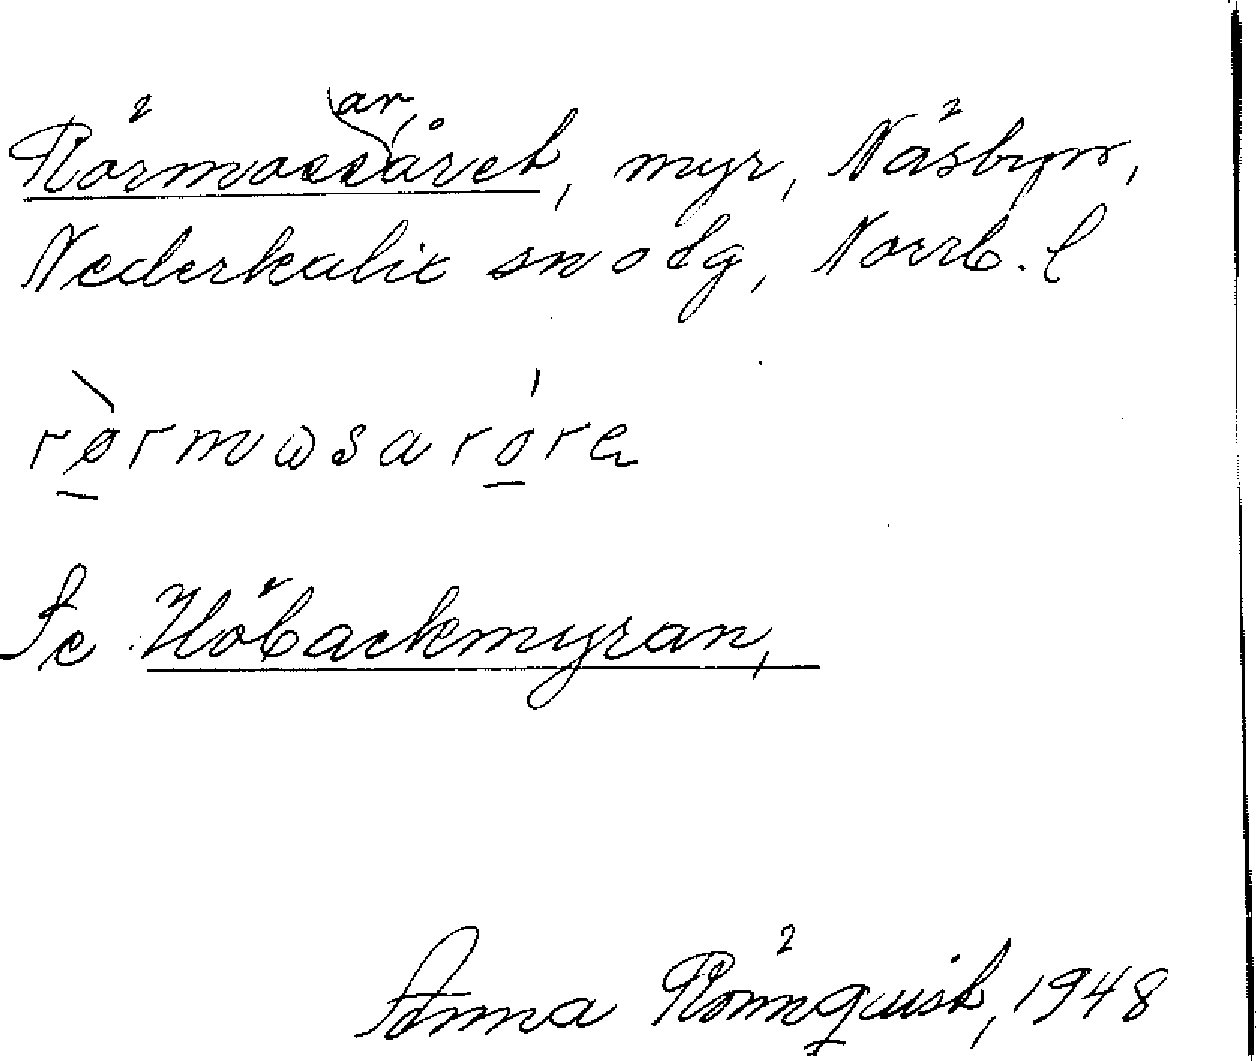 Rörmossararåret, myr, Näsbyn,
Nederkalix sn o tg, Norrb. l
rørmωsaråre
Se Höbäckmyran,
Anna Rönnquist, 1948